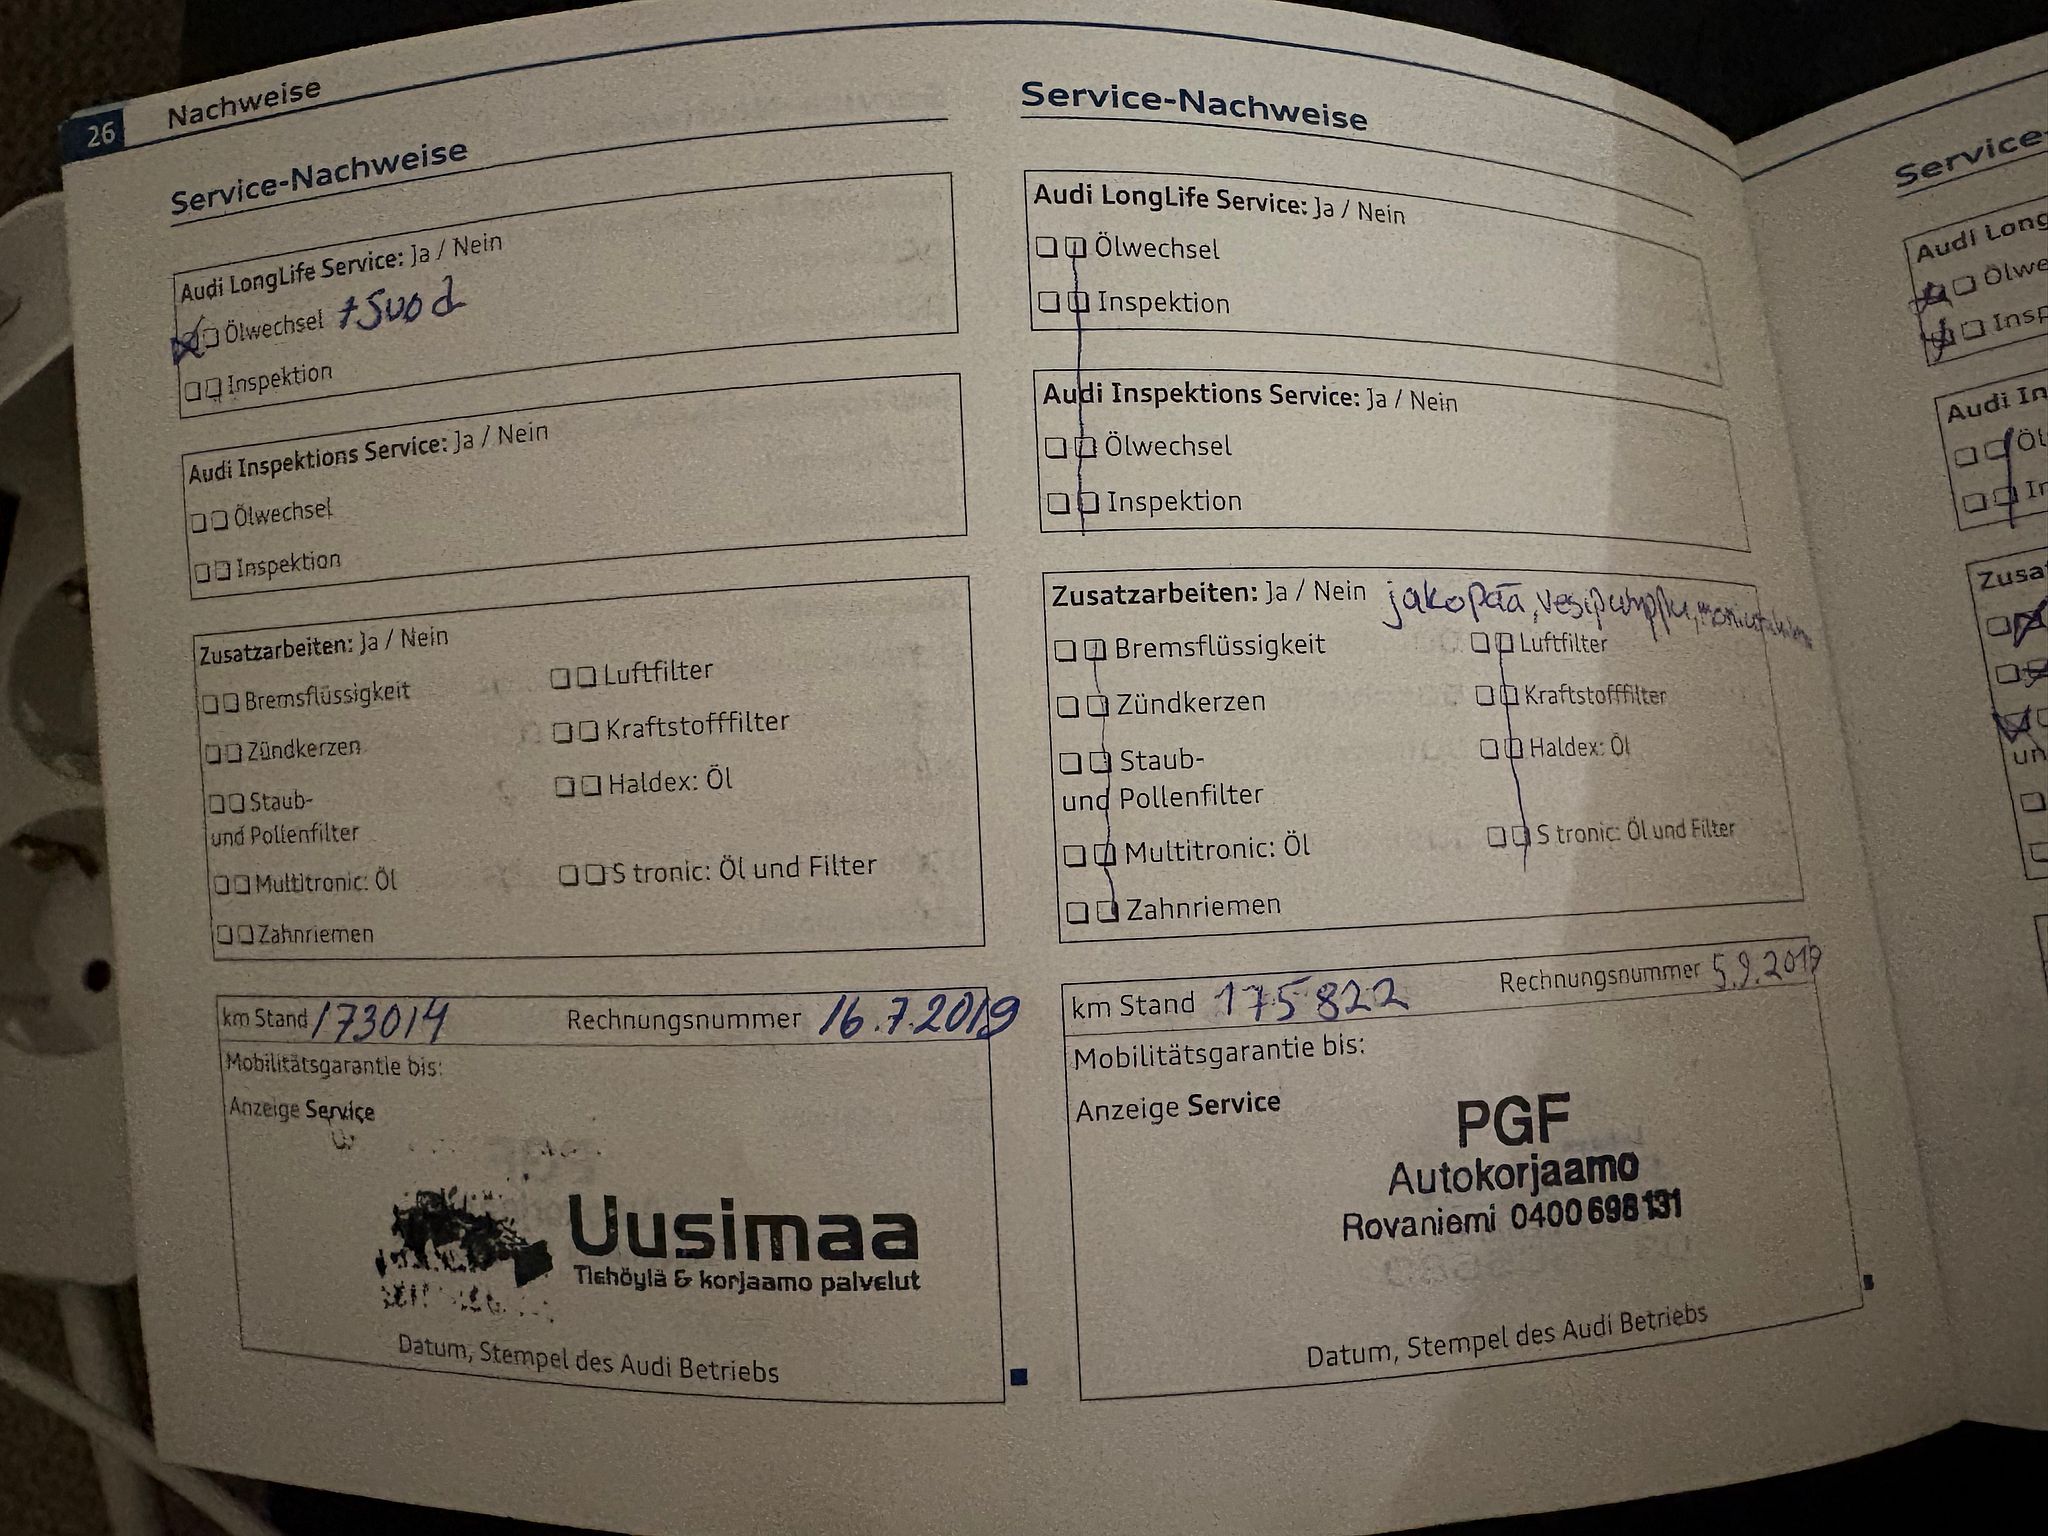 26 Nachweise
Service-Nachweise
Audi LongLife Service: Ja / Nein
Ölwechsel
Inspektion
Audi Inspektions Service: Ja / Nein
Ölwechsel
Inspektion
Zusatzarbeiten: Ja / Nein
Bremsflüssigkeit
Luftfilter
Zündkerzen
Kraftstofffilter
Staub-
und Pollenfilter
Haldex: Öl
Multitronic: Öl
S tronic: Öl und Filter
Zahnriemen
km Stand 173014 Rechnungsnummer 16.7.2019
Mobilitätsgarantie bis:
Anzeige Service
Uusimaa
Tiehöylä & korjaamo palvelut
Datum, Stempel des Audi Betriebs
Service-Nachweise
Audi LongLife Service: Ja / Nein
Ölwechsel
Inspektion
Audi Inspektions Service: Ja / Nein
Ölwechsel
Inspektion
Zusatzarbeiten: Ja / Nein jakopää, vesipumppu,
Bremsflüssigkeit
Luftfilter
Zündkerzen
Kraftstofffilter
Staub-
und Pollenfilter
Haldex: Öl
Multitronic: Öl
S tronic: Öl und Filter
Zahnriemen
km Stand 175822 Rechnungsnummer 5.9.2019
Mobilitätsgarantie bis:
Anzeige Service
PGF
Autokorjaamo
Rovaniemi 0400698131
Datum, Stempel des Audi Betriebs
Service-
Audi Long
Ölwe
Insp
Audi In
Öl
In
Zusa
un